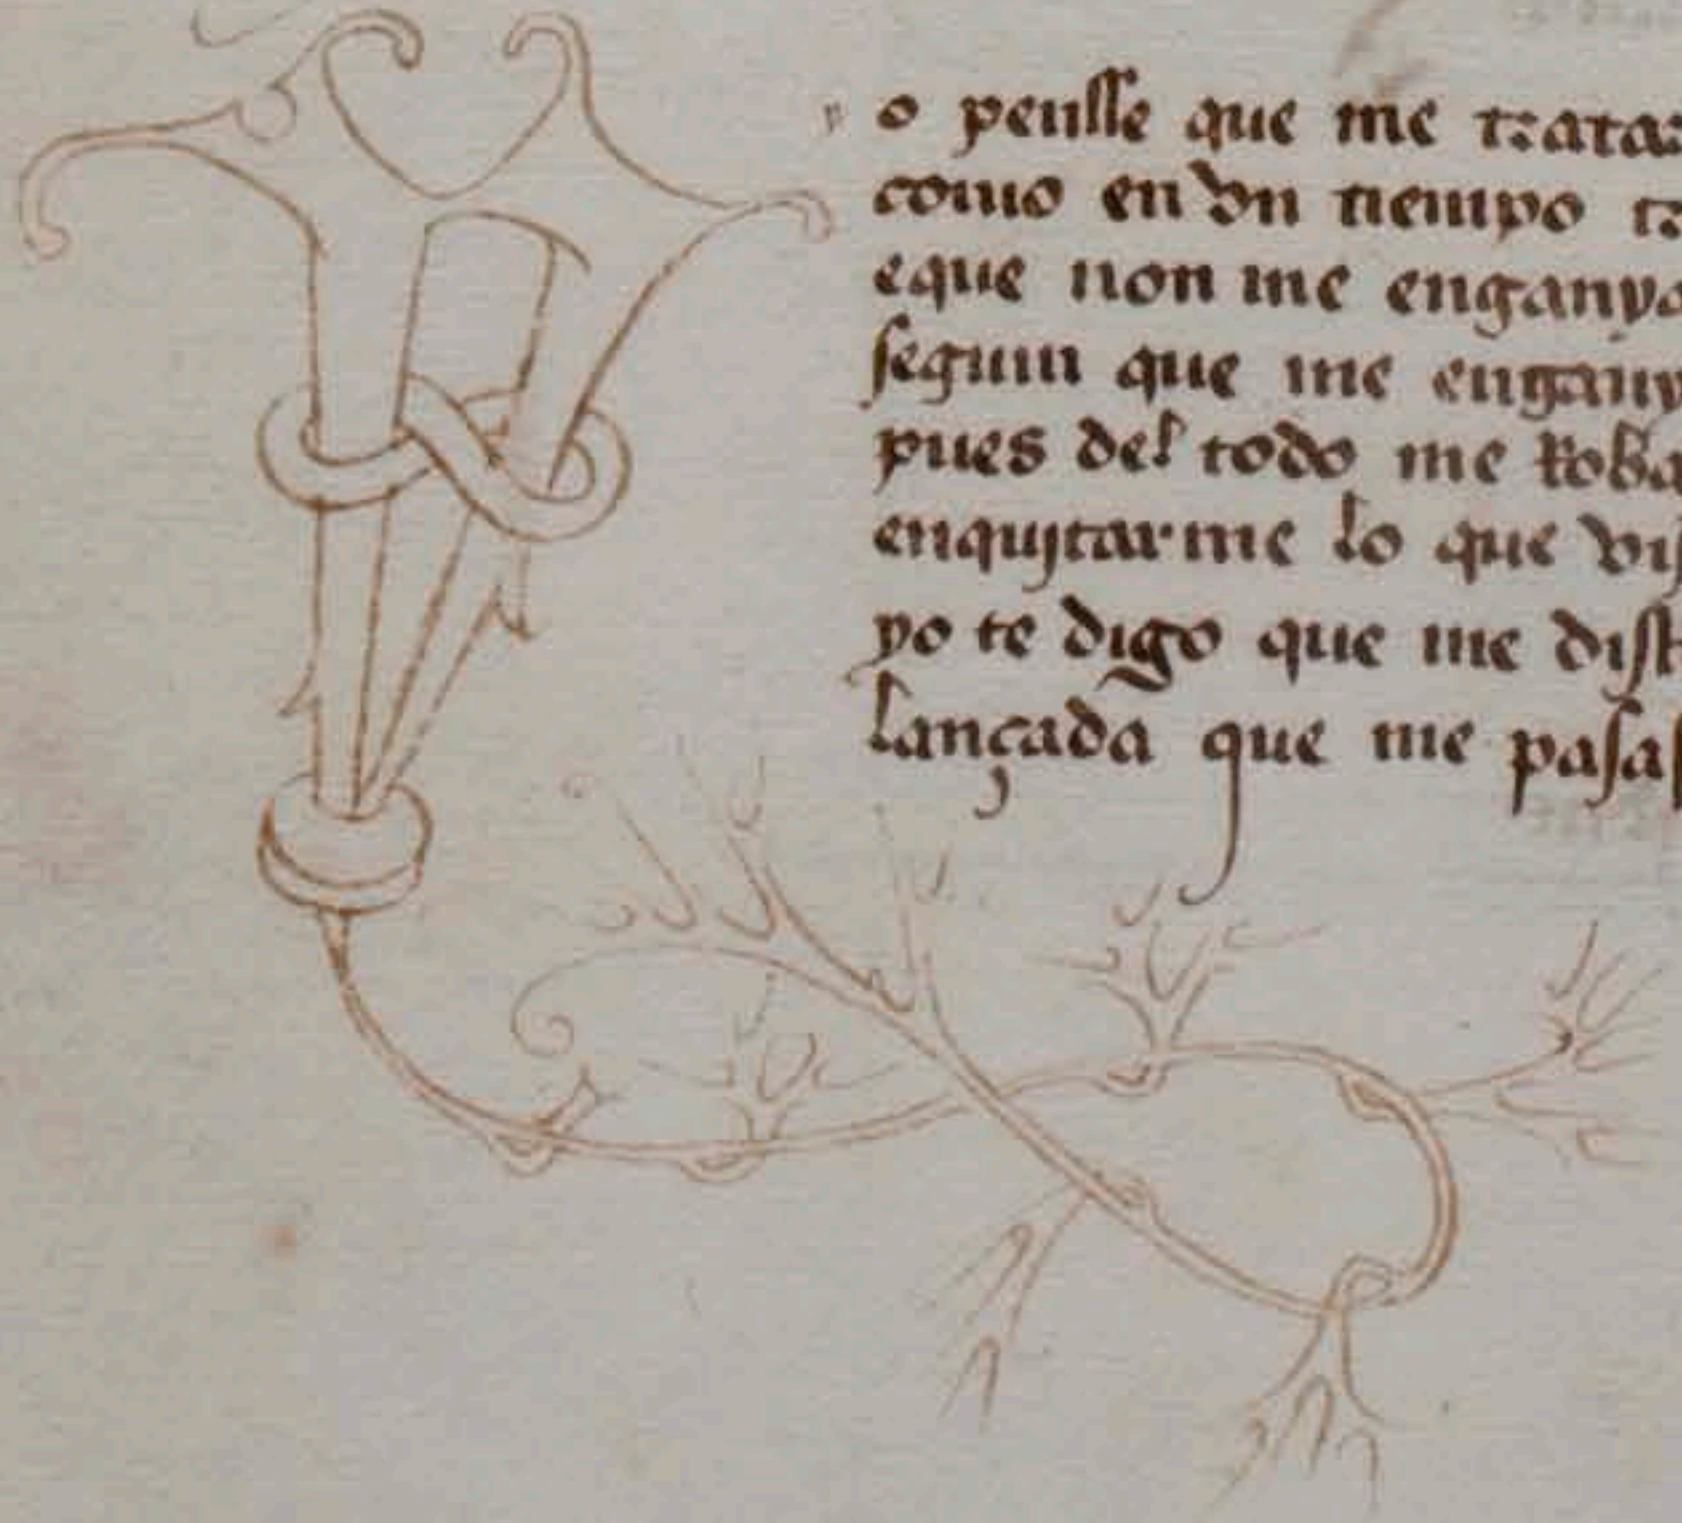 y o pensse que me tratar
como en vn tiempo tr
eque non me enganya
segunt que me engany
pues del todo me Roba
enquitarme lo que vis
yo te digo que me dist
lançada que me pasas